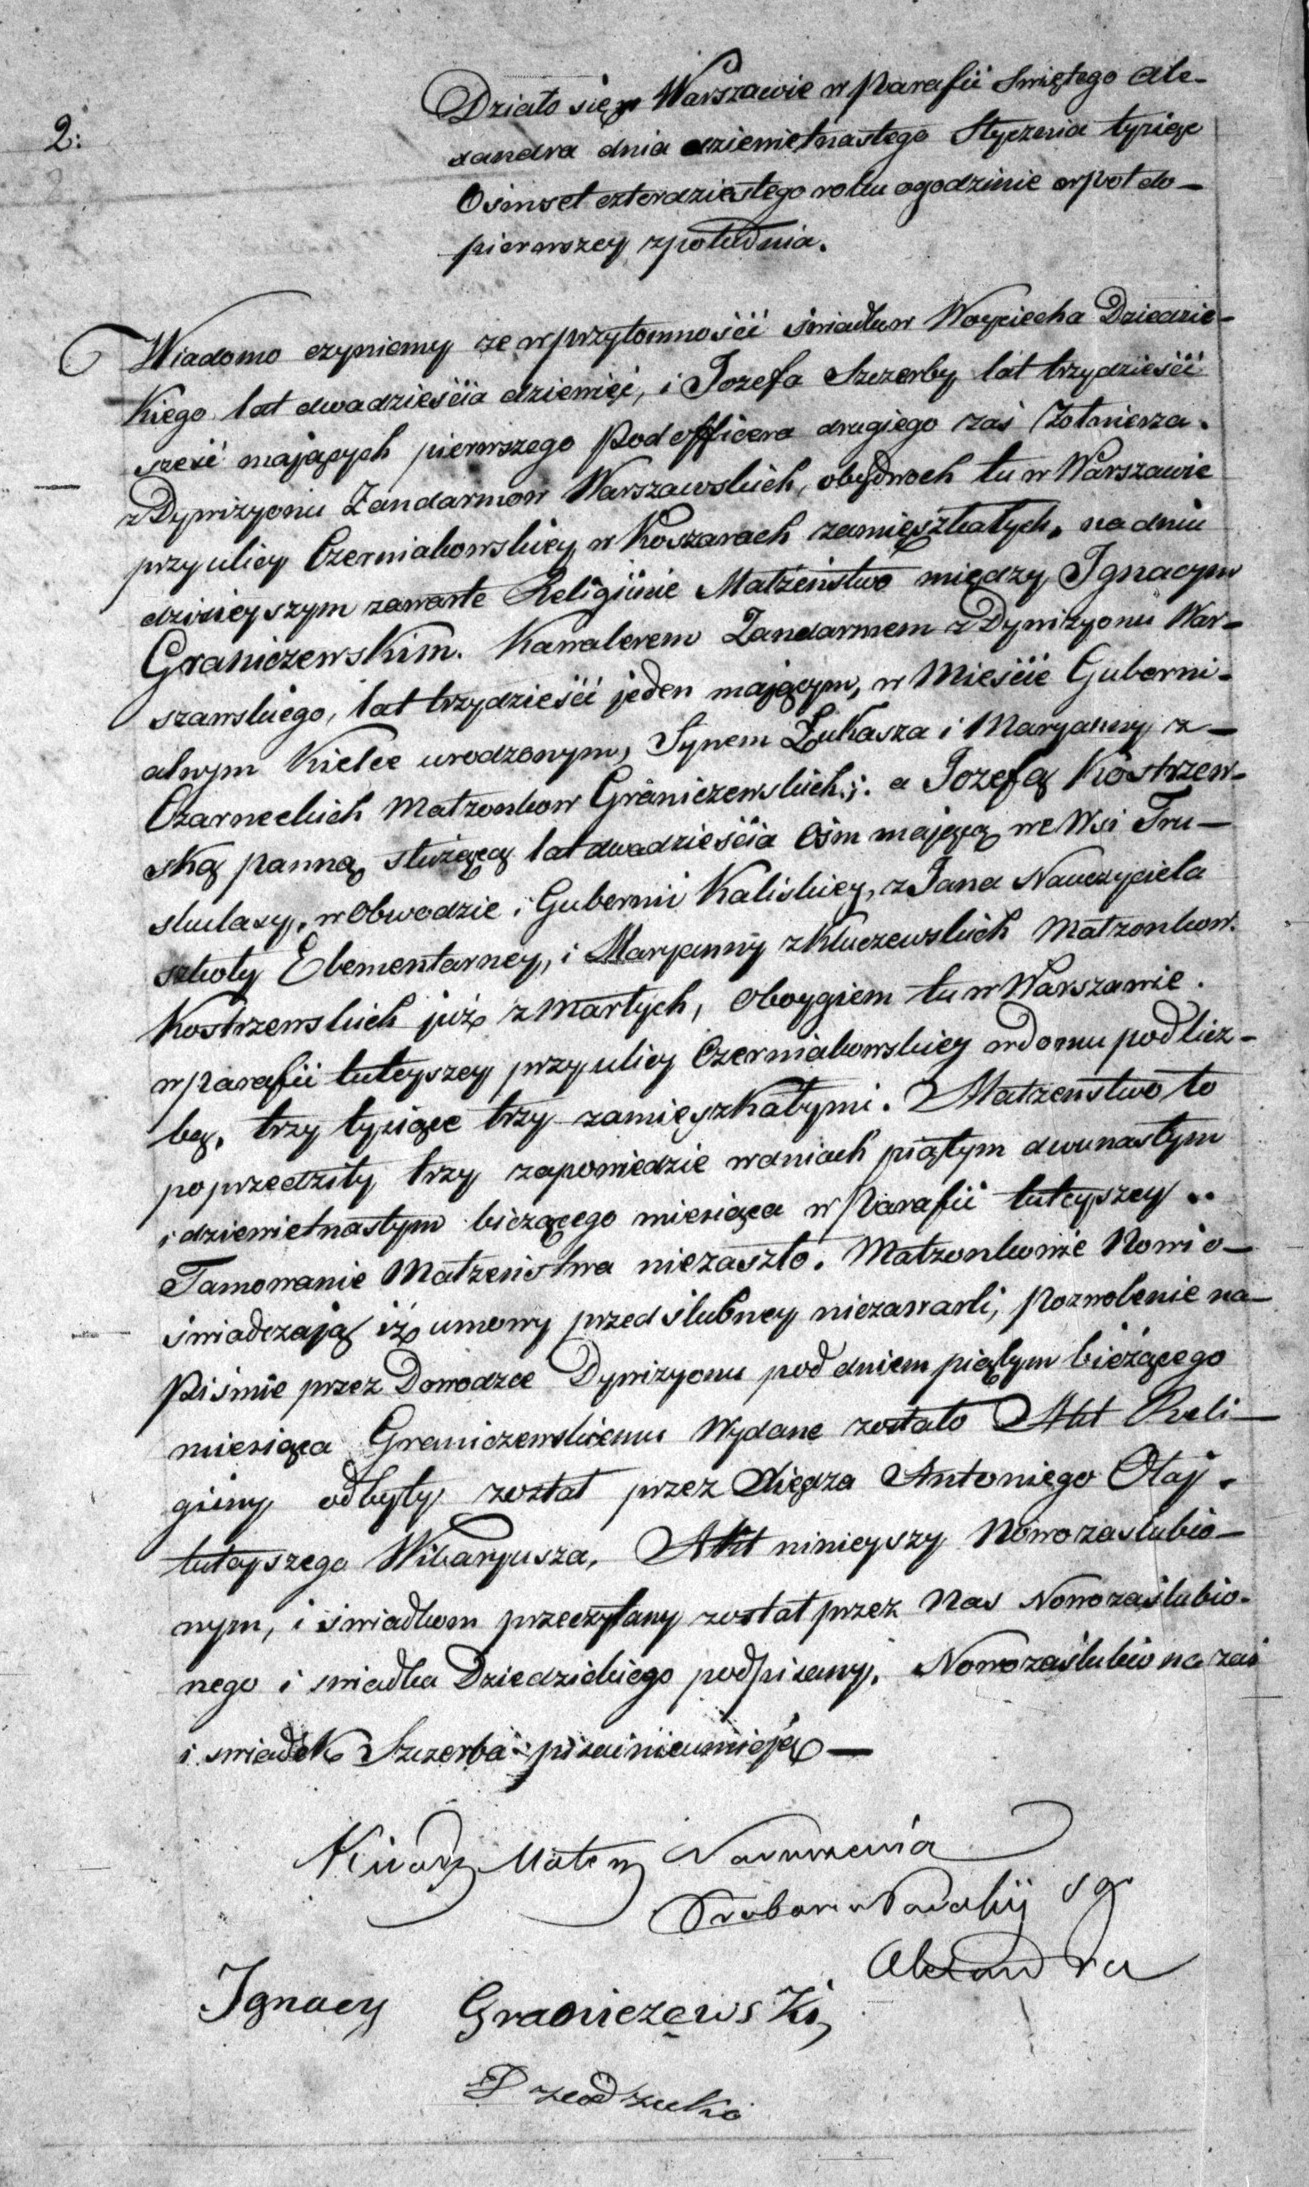 2:
Działo się w Warszawie w Parafii Swiętego Ale-
xandra dnia dziewiętnastego Stycznia tysiąc
Osimset czterdziestego roku ogodzinie wpoł do-
pierwszey zpołudnia.
Wiadomo czyniemy ze wprzytomności świadków Woyciecha Dziedzic-
kiego lat dwadzieścia dziewięć, i Jozefa Szczerby lat trzydzieści
sześć mających pierwszego Podofficera drugiego zaś Żołnierza.
z Dywizyonu Żandarmow Warszawskich, obydwoch tu w Warszawie
przy ulicy Czerniakowskiey w Koszarach zamięszkałych. na dniu
dzisieyszym zawarte Religijnie Małżeństwo między Ignacym
Graniczewskim. Kawalerem Żandarmem z Dywizyonu War-
szawskiego, lat trzydzieści jeden mającym, w Mieście Guberni-
alnym Kielce urodzonym, Synem Łukasza i Maryanny z-
Czarneckich Małzonkow Graniczewskich; a Jozefą Kostrzew-
ską panną, służącą lat dwadzieścia Ośm mającą we Wsi Tru-
skulasy, w Obwodzie i Gubernii Kaliskiey, z Jana Nauczyciela
szkoły Elementarney, i Maryanny z Kluczewskich Małzonkow.
Kostrzewskich już zmarłych, Oboygiem tu w Warszawie.
w parafii tuteyszey przy ulicy Czerniakowskiey w domu pod licz-
bą, trzy tysiące trzy zamięszkałymi. Małzenstwo to
poprzedziły trzy zapowiedzie wdniach piątym dwunastym
i dziewietnastym bieżącego miesiąca w Parafii tuteyszey..
Tamowanie Małzeństwa niezaszło. Małzonkowie Nowi o-
świadczają iż umowy przedślubney niezawarli; pozwolenie na-
Piśmie przez Dowodzce Dywizyonu pod dniem piątym bieżącego
miesiąca Graniczewskiemu Wydane zostało Akt Reli-
giiny odbyty został przez Xiędza Antoniego Otaj.
tuteyszego Wikaryusza. Akt ninieyszy Nowozaslubio-
nym, i świadkom przeczytany został przez Nas Nowozaślubio-
nego i swiadka Dziedzickiego podpisany. Nowozaślubiona zaś
i swiadek Szczerba pisać nieumieją —
Alexandra
Ignacy Graniczewski